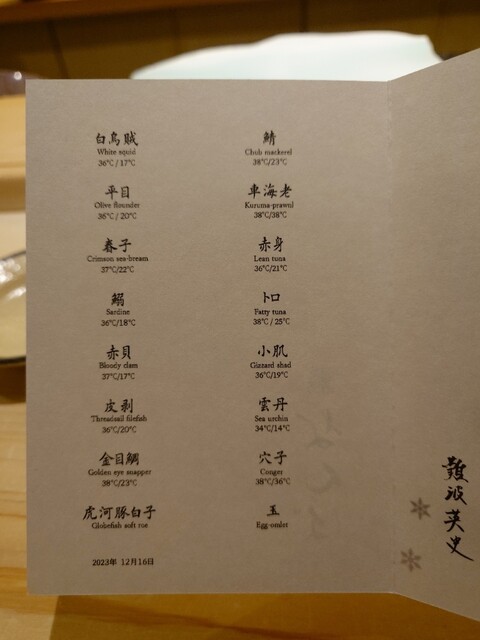 白烏賊
White squid
36℃ / 17℃
平目
Olive flounder
36℃ / 20℃
春子
Crimson sea-bream
37℃/22℃
鰯
Sardine
36℃/18℃
赤貝
Bloody clam
37℃/17℃
皮剥
Threadsail filefish
36℃/20℃
金目鯛
Golden eye snapper
38℃/23℃
虎河豚白子
Globefish soft roe
2023年 12月16日
鯖
Chub mackerel
38℃/23℃
車海老
Kuruma-prawnl
38℃/38℃
赤身
Lean tuna
36℃/21℃
トロ
Fatty tuna
38℃ / 25℃
小肌
Gizzard shad
36℃/19℃
雲丹
Sea urchin
34℃/14℃
穴子
Conger
38℃/36℃
玉
Egg-omlet
難波英史